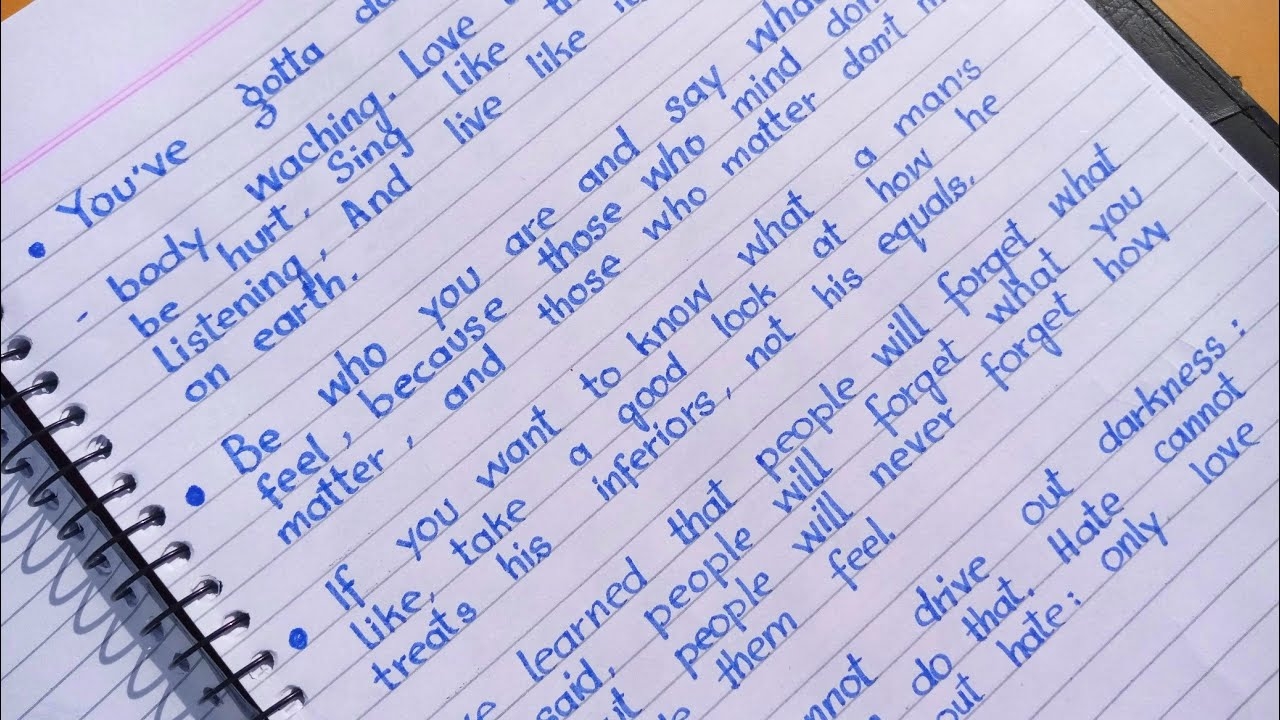 • You've gotta
- body waching. Love
be hurt, Sing like
listening, And live like
on earth.
• Be who you are and say
feel, because those who mind
matter, and those who matter don't
• If you want to know what a man's
like, take a good look at how he
treats his inferiors, not his equals.
learned that people will forget what
said, people will forget what you
people will never forget how
them feel.
drive out darkness:
do that. Hate cannot
hate: only love